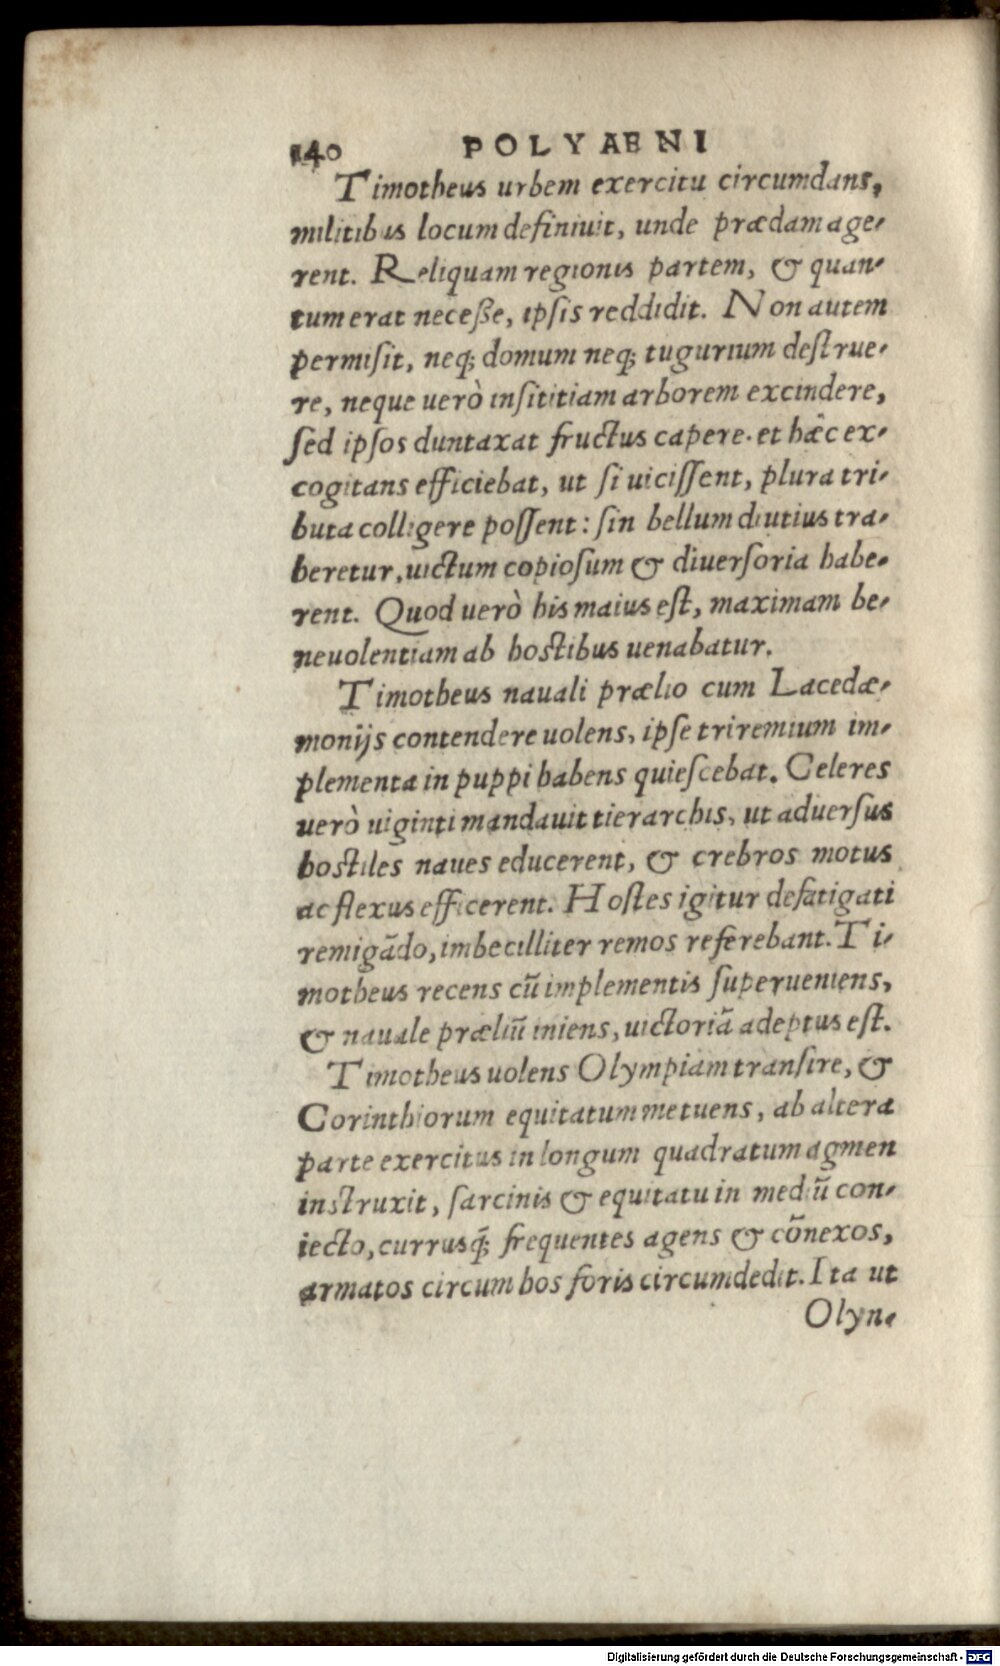 140 POLYAENI
Timotheus urbem exercitu circumdans,
militibus locum definiuit, unde prædam age-
rent. Reliquam regionis partem, & quan-
tum erat necesse, ipsis reddidit. Non autem
permisit, neq; domum neq; tugurium destrue-
re, neque uerò insititiam arborem excindere,
sed ipsos duntaxat fructus capere. et hæc ex-
cogitans efficiebat, ut si uicissent, plura tri-
buta colligere possent: sin bellum diutius tra-
heretur, uictum copiosum & diuersoria habe-
rent. Quod uerò his maius est, maximam be-
neuolentiam ab hostibus uenabatur.
Timotheus nauali prælio cum Lacedæ-
monijs contendere uolens, ipse triremium im-
plementa in puppi habens quiescebat. Celeres
uerò uiginti mandauit tierarchis, ut aduersus
hostiles naues educerent, & crebros motus
ac flexus efficerent. Hostes igitur defatigati
remigãdo, imbecilliter remos referebant. Ti-
motheus recens cũ implementis superueniens,
& nauale præliũ iniens, uictoriã adeptus est.
Timotheus uolens Olympiam transire, &
Corinthiorum equitatum metuens, ab altera
parte exercitus in longum quadratum agmen
instruxit, sarcinis & equitatu in mediũ con-
iecto, currusq́; frequentes agens & cõnexos,
armatos circum hos foris circumdedit. Ita ut
Olyn-
Digitalisierung gefördert durch die Deutsche Forschungsgemeinschaft - DFG